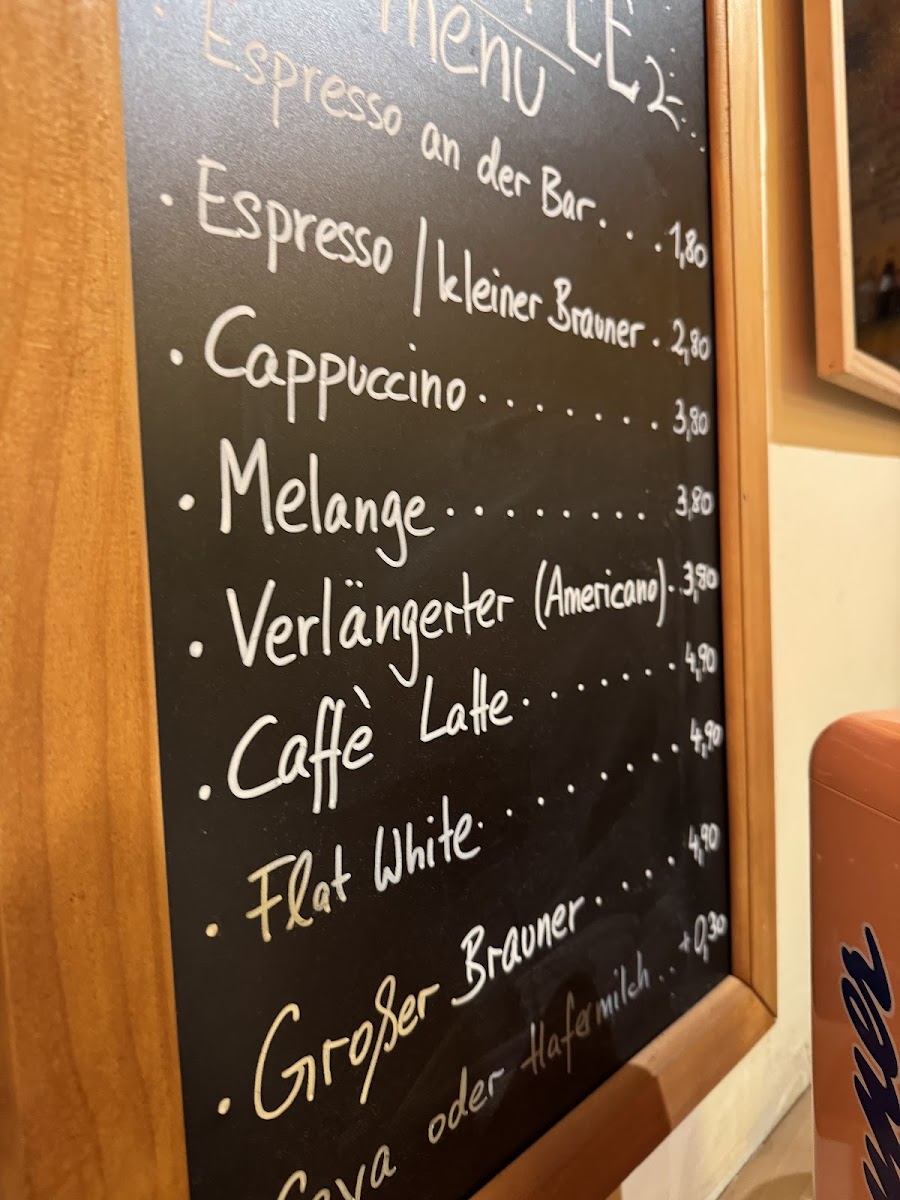 Menu
Espresso an der Bar. . . . 1,80
· Espresso / kleiner Brauner . 2,80
· Cappuccino . . . . . . . 3,80
· Melange . . . . . . . . 3,80
· Verlängerter (Americano) . 3,80
· Caffè Latte . . . . . . . 4,90
· Flat White . . . . . . . . 4,90
· Großer Brauner . . . . 4,90
Soya oder Hafermilch . . +0,30